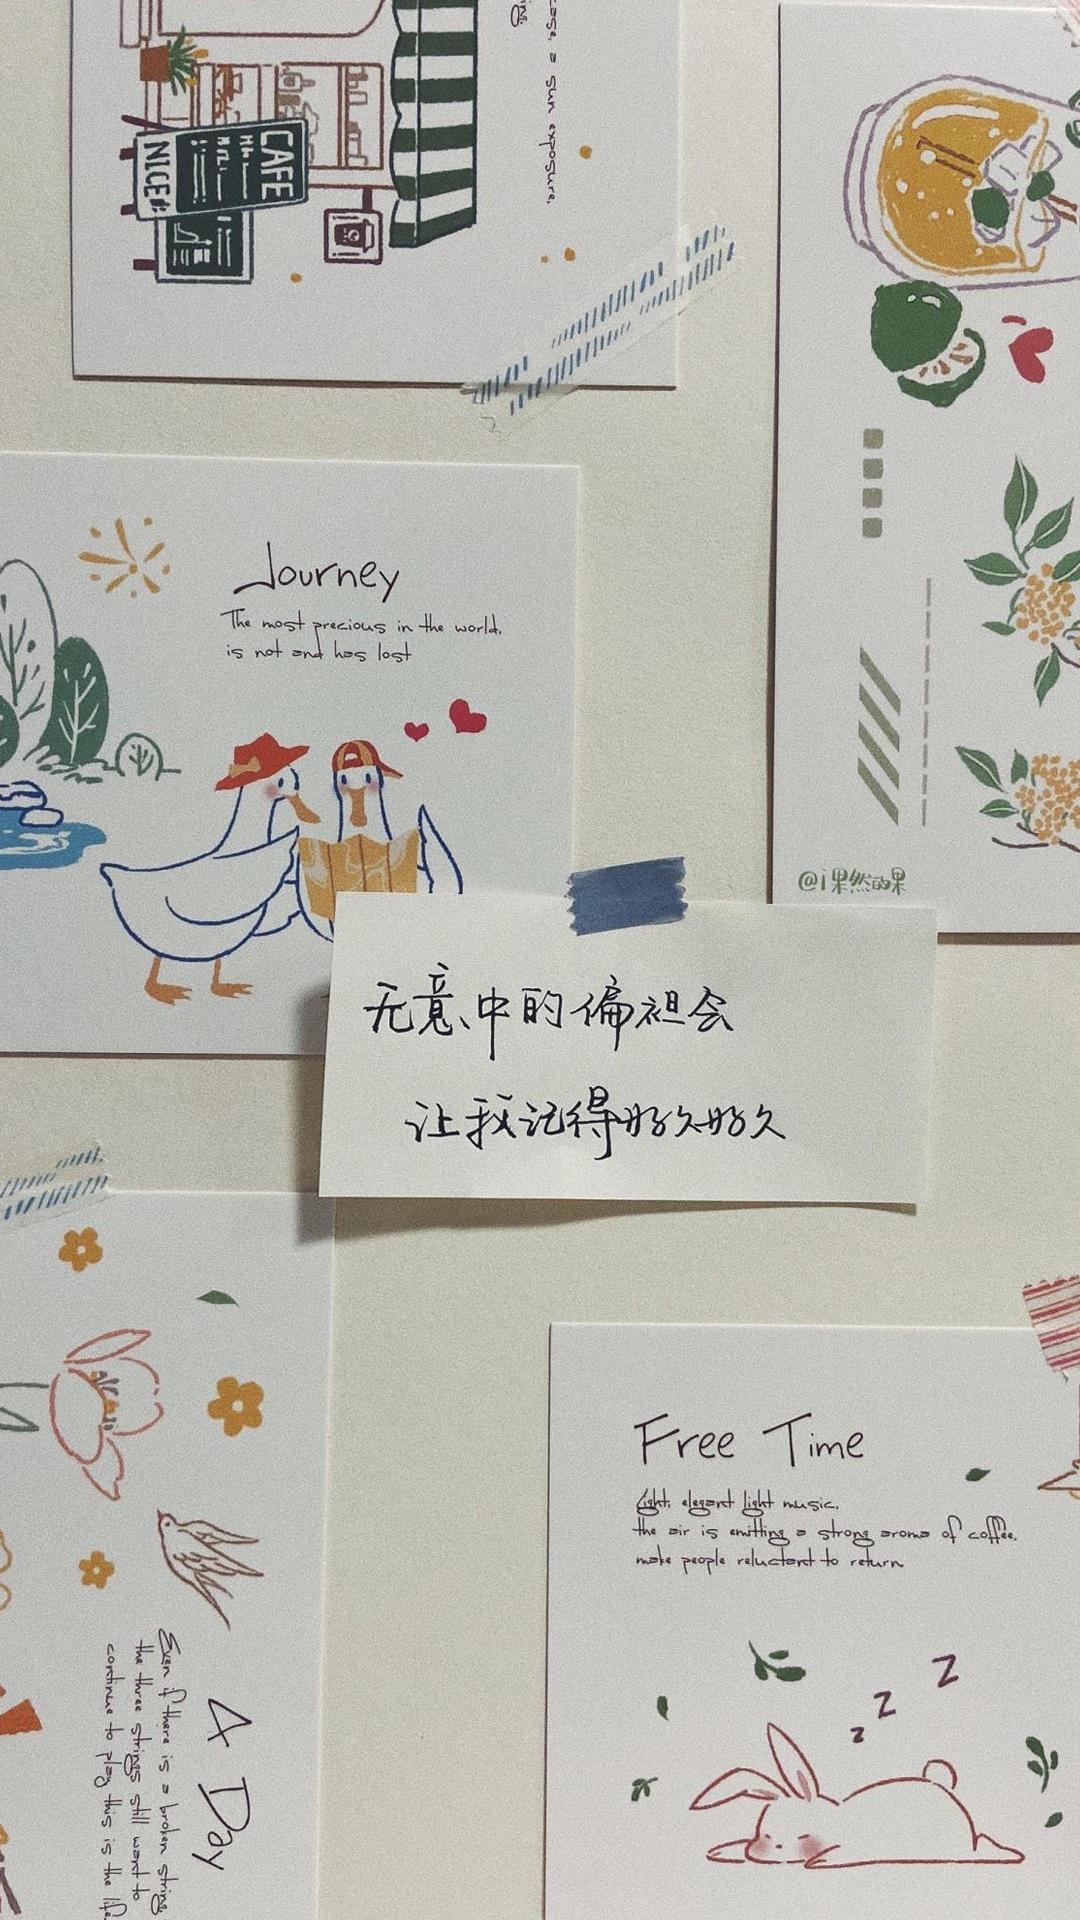 ease, a sun exposure.
CAFE
NICE
Journey
The most precious in the world,
is not and has lost
@1果然的果
无意中的偏袒会
让我记得好久好久
Free Time
Light, elegant light music,
the air is emitting a strong aroma of coffee,
make people reluctant to return
z
z
z
A Day
Even if there is a broken string,
the three strings still want to
continue to play this is the life.